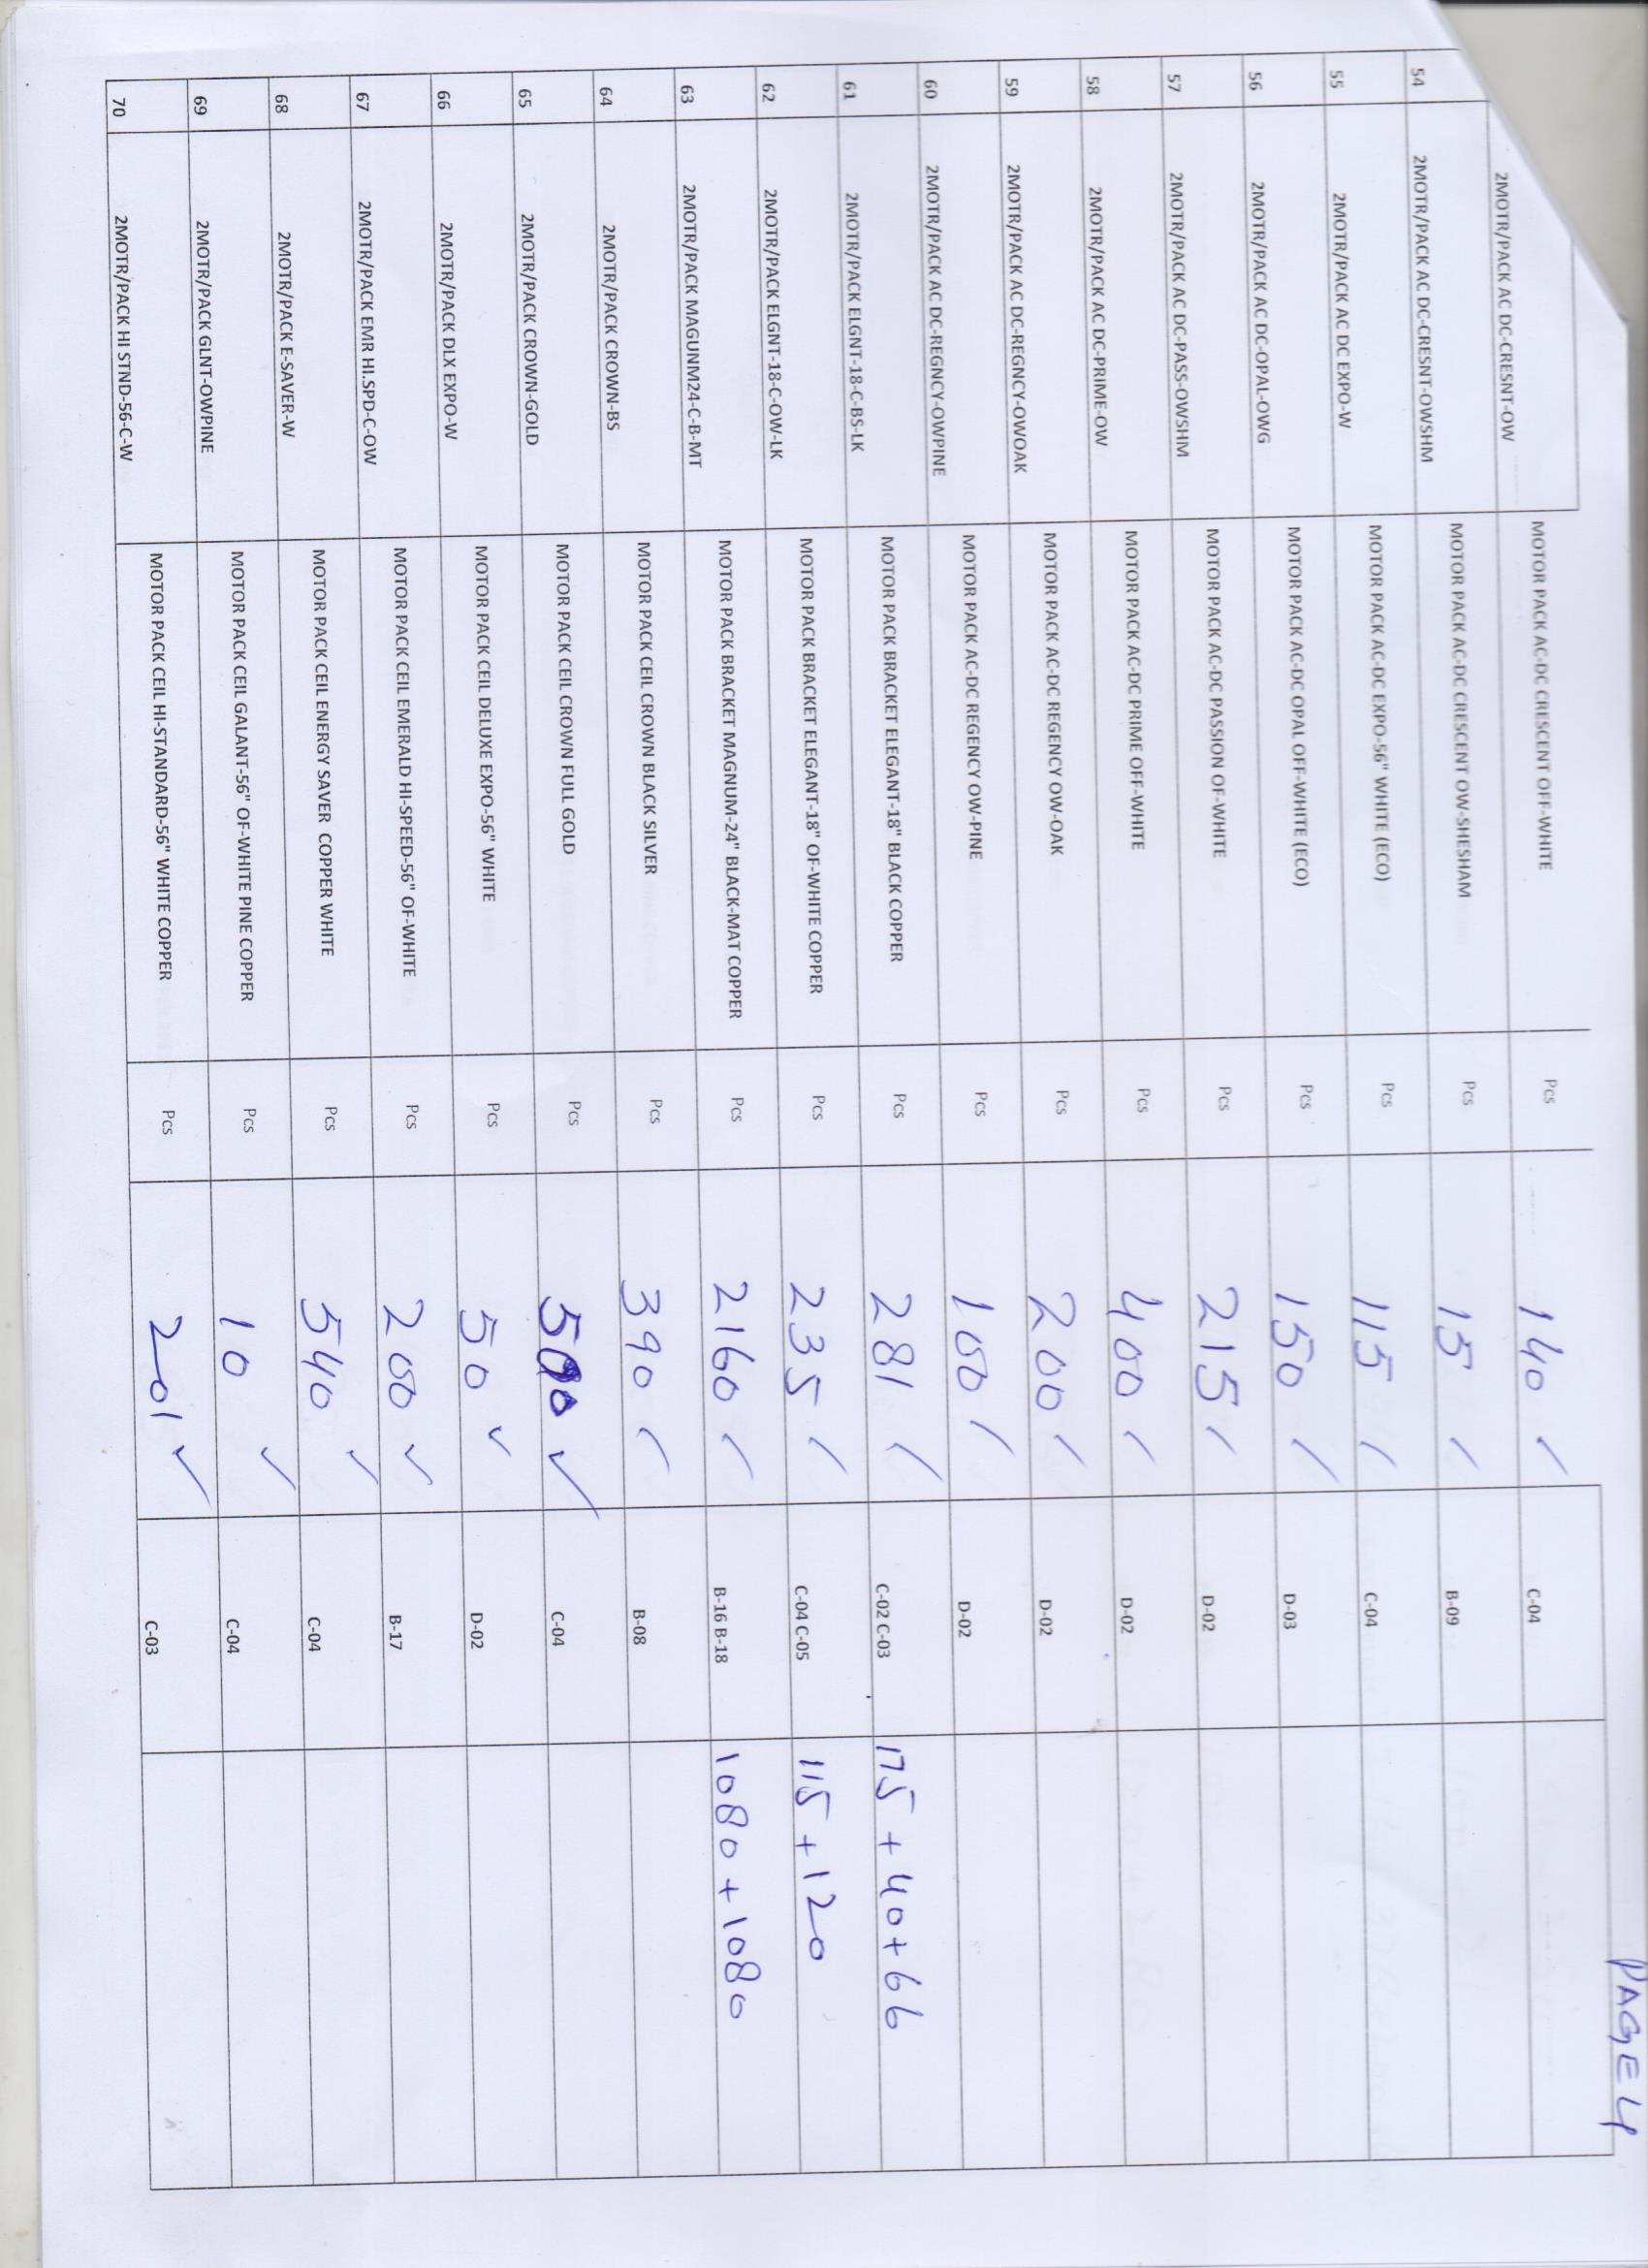 PAGE 4
2MOTR/PACK AC DC-CRESNT-OW MOTOR PACK AC-DC CRESCENT OFF-WHITE Pcs 140 ✓ C-04
54 2MOTR/PACK AC DC-CRESNT-OWSHM MOTOR PACK AC-DC CRESCENT OW-SHESHAM Pcs 15 ✓ B-09
55 2MOTR/PACK AC DC EXPO-W MOTOR PACK AC-DC EXPO-56" WHITE (ECO) Pcs 115 ✓ C-04
56 2MOTR/PACK AC DC-OPAL-OWG MOTOR PACK AC-DC OPAL OFF-WHITE (ECO) Pcs 150 ✓ D-03
57 2MOTR/PACK AC DC-PASS-OWSHM MOTOR PACK AC-DC PASSION OF-WHITE Pcs 215 ✓ D-02
58 2MOTR/PACK AC DC-PRIME-OW MOTOR PACK AC-DC PRIME OFF-WHITE Pcs 400 ✓ D-02
59 2MOTR/PACK AC DC-REGNCY-OWOAK MOTOR PACK AC-DC REGENCY OW-OAK Pcs 200 ✓ D-02
60 2MOTR/PACK AC DC-REGNCY-OWPINE MOTOR PACK AC-DC REGENCY OW-PINE Pcs 100 ✓ D-02
61 2MOTR/PACK ELGNT-18-C-BS-LK MOTOR PACK BRACKET ELEGANT-18" BLACK COPPER Pcs 281 ✓ C-02 C-03 175 + 40 + 66
62 2MOTR/PACK ELGNT-18-C-OW-LK MOTOR PACK BRACKET ELEGANT-18" OF-WHITE COPPER Pcs 235 ✓ C-04 C-05 115 + 120
63 2MOTR/PACK MAGUNM24-C-B-MT MOTOR PACK BRACKET MAGNUM-24" BLACK-MAT COPPER Pcs 2160 ✓ B-16 B-18 1080 + 1080
64 2MOTR/PACK CROWN-BS MOTOR PACK CEIL CROWN BLACK SILVER Pcs 390 ✓ B-08
65 2MOTR/PACK CROWN-GOLD MOTOR PACK CEIL CROWN FULL GOLD Pcs ✓ C-04
66 2MOTR/PACK DLX EXPO-W MOTOR PACK CEIL DELUXE EXPO-56" WHITE Pcs 50 ✓ D-02
67 2MOTR/PACK EMR HI.SPD-C-OW MOTOR PACK CEIL EMERALD HI-SPEED-56" OF-WHITE Pcs 200 ✓ B-17
68 2MOTR/PACK E-SAVER-W MOTOR PACK CEIL ENERGY SAVER COPPER WHITE Pcs 540 ✓ C-04
69 2MOTR/PACK GLNT-OWPINE MOTOR PACK CEIL GALANT-56" OF-WHITE PINE COPPER Pcs 10 ✓ C-04
70 2MOTR/PACK HI STND-56-C-W MOTOR PACK CEIL HI-STANDARD-56" WHITE COPPER Pcs 201 ✓ C-03